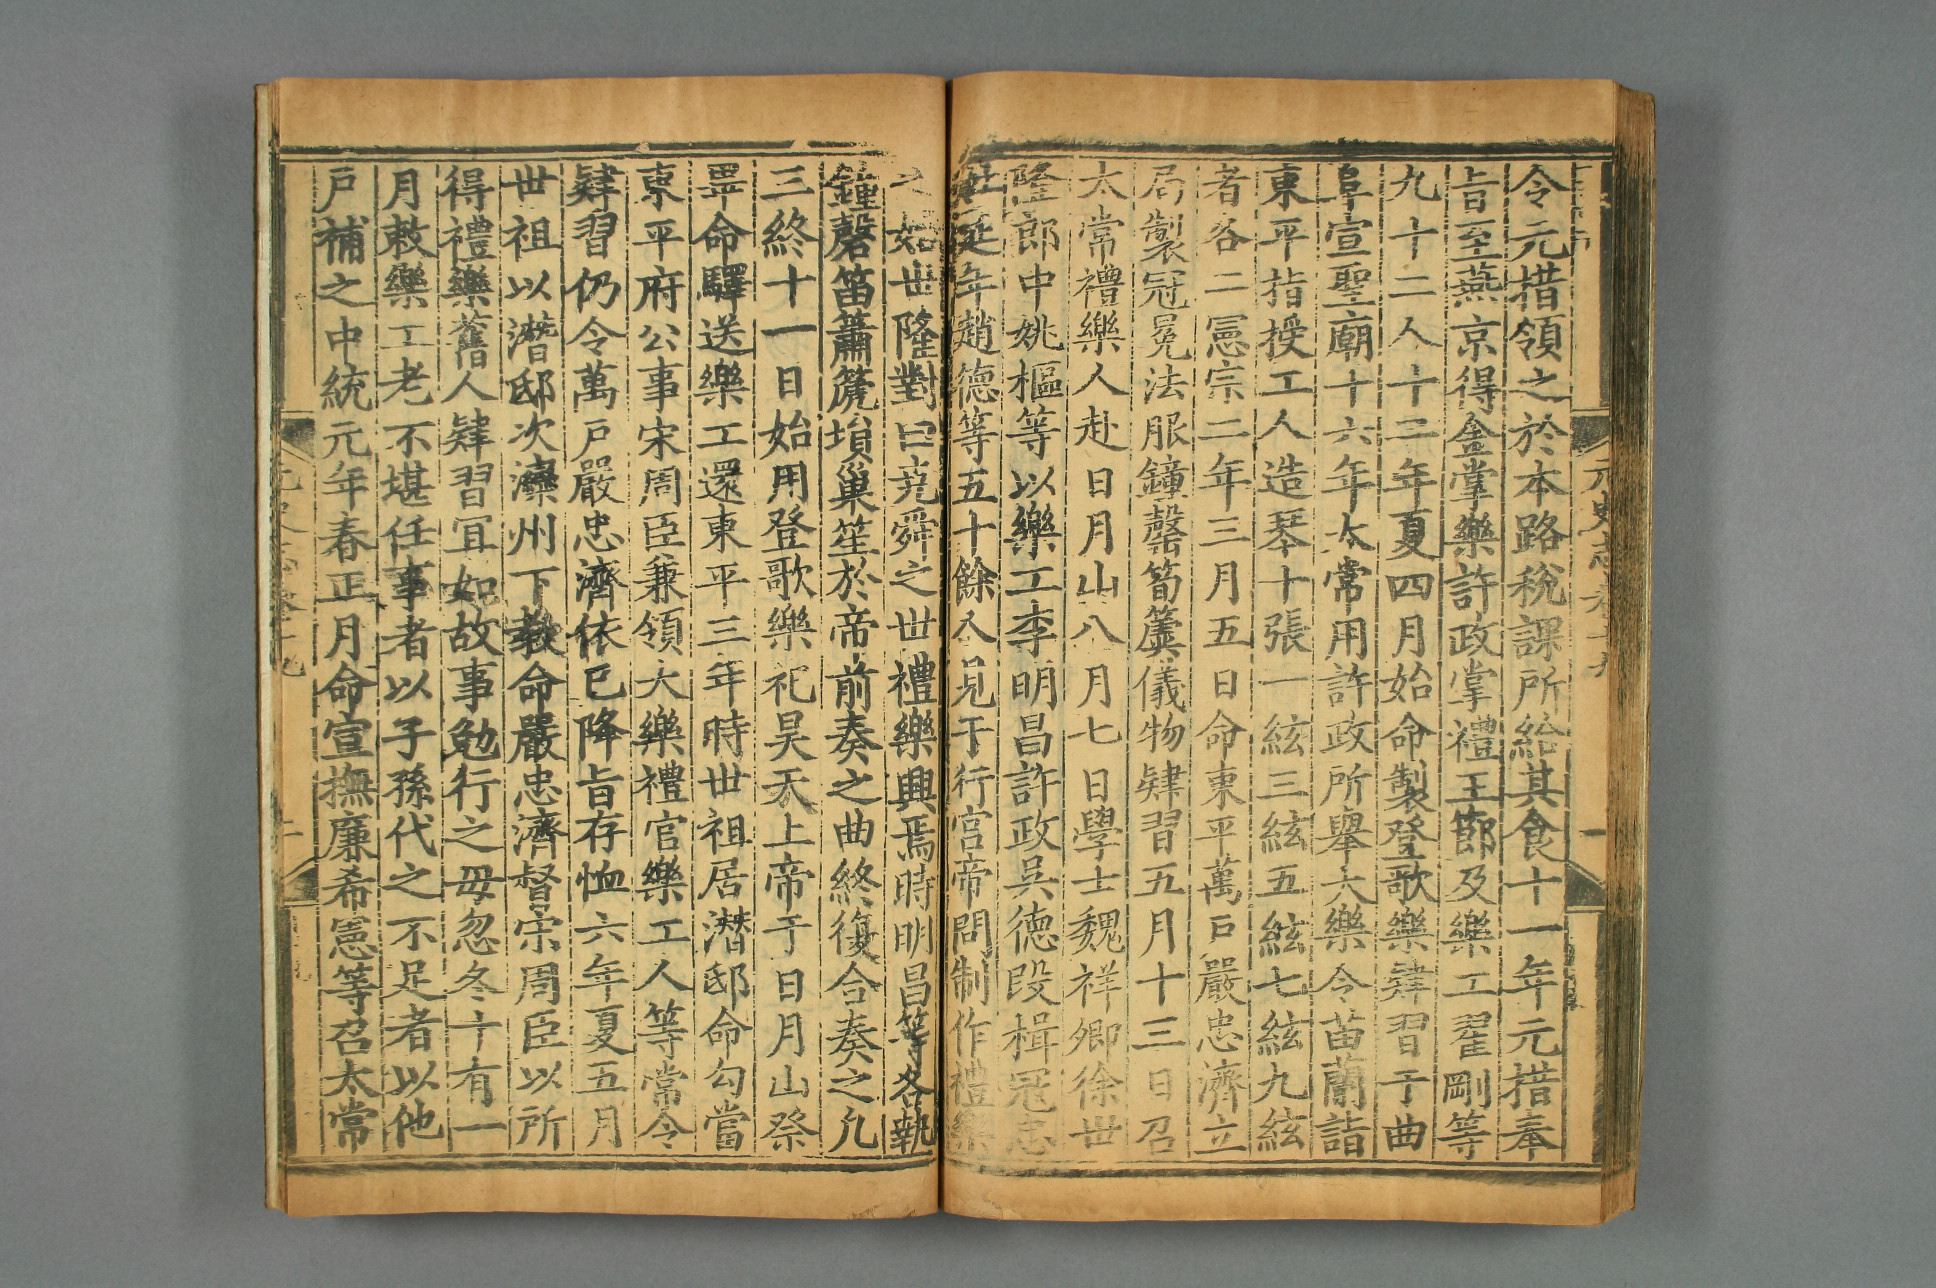 令元措領之於本路稅課所給其食十一年元措奉
旨至燕京得金掌樂許政掌禮王節及樂工翟剛等
九十二人十二年夏四月始命製登歌樂肄習于曲
阜宣聖廟十六年太常用許政所舉大樂令苗蘭詣
東平指授工人造琴十張一絃三絃五絃七絃九絃
者各二憲宗二年三月五日命東平萬戶嚴忠濟立
局製冠冕法服鐘磬筍簴儀物肄習五月十三日召
太常禮樂人赴日月山八月七日學士魏祥卿徐世
隆郎中姚樞等以樂工李明昌許政吳德段楫冠忠
杜延年趙德等五十餘人見于行宮帝問制作禮樂
之始世隆對曰堯舜之世禮樂興焉時明昌等各執
鐘磬笛簫篪塤巢笙於帝前奏之曲終復合奏之凡
三終十一日始用登歌樂祀昊天上帝于日月山祭
畢命驛送樂工還東平三年時世祖居潛邸命勾當
東平府公事宋周臣兼領大樂禮官樂工人等常令
肄習仍令萬戶嚴忠濟依已降旨存恤六年夏五月
世祖以潛邸次濼州下教命嚴忠濟督宋周臣以所
得禮樂舊人肄習宜如故事勉行之毋忽冬十有一
月敕樂工老不堪任事者以子孫代之不足者以他
戶補之中統元年春正月命宣撫廉希憲等召太常
元史志卷十九
二